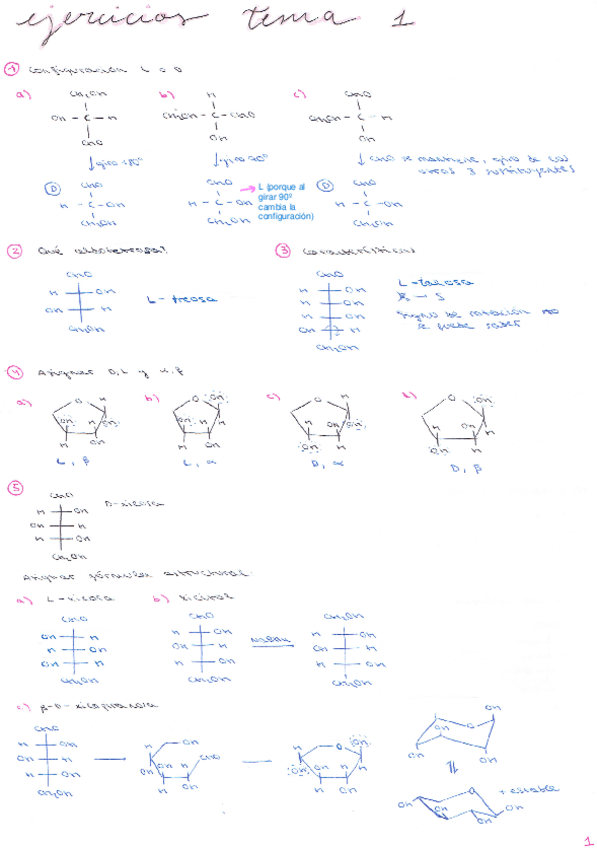 ejercicios tema 1
1 Configuración L o D
a) b) c)
CH₂OH H CHO
OH - C - H CH₂OH - C - CHO CH₂OH - C - H
CHO OH OH
↓ giro 180° ↓ giro 90° ↓ CHO se mantiene, giro de los otros 3 sustituyentes
D CHO CHO D CHO
H - C - OH H - C - OH H - C - OH
CH₂OH CH₂OH CH₂OH
L (porque al
girar 90º
cambia la
configuración)
2 Qué aldotetrosa?
CHO
H OH
OH H
CH₂OH
L-treosa
3 Características
CHO
H OH
H OH
H OH
OH H
CH₂OH
L-talosa
R → S
Signo de rotación no
se puede saber
4 Asignar D, L y α, β
a) b) c) d)
L, β L, α D, α D, β
5
CHO
H OH
OH H
H OH
CH₂OH
D-xilosa
Asignar fórmula estructural:
a) L-xilosa b) xilitol
CHO CHO CH₂OH
OH H H OH H OH
H OH OH H OH H
OH H H OH H OH
CH₂OH CH₂OH CH₂OH
NaBH₄
c) β-D-xilopiranosa
CHO
H OH
OH H
H OH
CH₂OH
+ estable
1